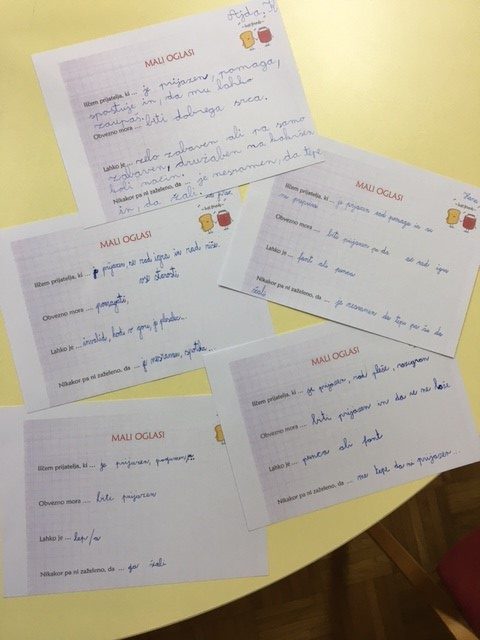 Ajda, K
best friends
MALI OGLASI
Iščem prijatelja, ki ... je prijazen, pomaga,
spoštuje in, da mu lahko
zaupaš.
Obvezno mora ... biti dobrega srca.
Lahko je ... zelo zabaven ali pa samo
zabaven, družaben na kakršen
koli način.
Nikakor pa ni zaželeno, da ... je nesramen, da tepe
in, da žali
MALI OGLASI
Zara
Iščem prijatelja, ki ... je prijazen rad pomaga in se
ne prepira
Obvezno mora ... biti prijazen pa da se rad igra
Lahko je ... fant ali punca
Nikakor pa ni zaželeno, da ... je nesramen da tepa pa če da
žali
MALI OGLASI
Iščem prijatelja, ki ... prijazen, se rad igra in rad riše.
vse starosti
Obvezno mora ... pomagati,
Lahko je ... invalid, hodi v gore, je plezalec...
Nikakor pa ni zaželeno, da ... je nesramen,
MALI OGLASI
Iščem prijatelja, ki ... je prijazen, rad pleše,
Obvezno mora ... biti prijazen in da se ne
Lahko je ... punca ali fant
Nikakor pa ni zaželeno, da ... me tepe da ni prijazen...
MALI OGLASI
Iščem prijatelja, ki ... je prijazen,
Obvezno mora ... biti prijazen
Lahko je ... lep/a
Nikakor pa ni zaželeno, da ... ga žali